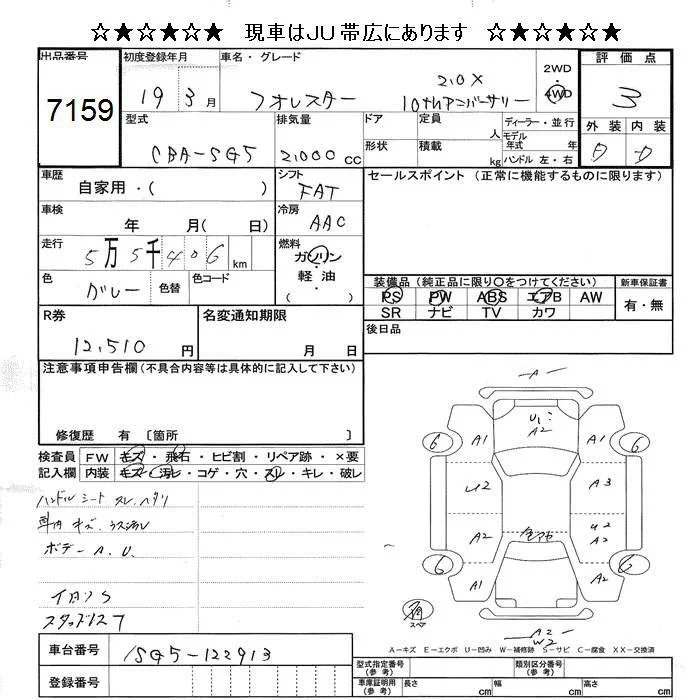 ☆★☆★☆★ 現車はJU帯広にあります ★☆★☆★☆
出品番号 初度登録年月 車名・グレード 2WD 評価点
7159 19 3月 フォレスター 2.0X 10thアニバーサリー 4WD 3
型式 排気量 ドア 定員 人 ディーラー・並行 外装 内装
モデル年式 年
CBA-SG5 2,000CC 形状 積載 kg ハンドル 左・右 D D
車歴 自家用・( ) シフト FAT セールスポイント(正常に機能するものに限ります)
車検 年 月( 日) 冷房 AAC
走行 5万5千406km 燃料 ガソリン
軽・油
( )
色 グレー 色替 色コード
装備品(純正品に限り○をつけてください) 新車保証書
PS PW ABS エアB AW 有・無
SR ナビ TV カワ
R券 12,510円 名変通知期限 月 日 後日品
注意事項申告欄(不具合内容等は具体的に記入して下さい)
修復歴 有 〔箇所 〕
検査員記入欄 FW キズ・飛石・ヒビ割・リペア跡・×要
内装 キズ・汚レ・コゲ・穴・スレ・キレ・破レ
ハンドル シート スレ.ヘタリ
車内 キズ.
ボデー A.U.
スタッドレス
A
U1
A2
6 A1 A1 6
U2 A3
A2 U2
A2
6 A1 A2 6
スペア
A2
W2
A-キズ E-エクボ U-凹み W-補修跡 S-サビ C-腐食 XX-交換済
車台番号 SG5-122913
登録番号
型式指定番号(参考) 類別区分番号(参考)
車庫証明用(参考) 長さ cm 幅 cm 高さ cm